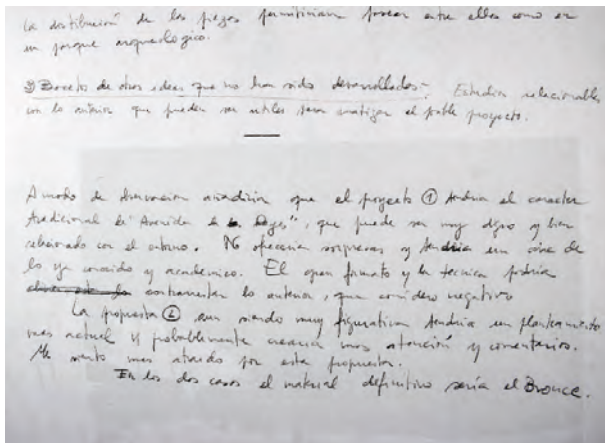 la distribución de las piezas permitirían pasear entre ellas como en
un parque arqueologico.
③ Boceto de otras ideas que no han sido desarrolladas-. Estudios relacionables
con lo mismo que pueden ser utiles para matizar el posible proyecto.
A modo de observacion añadiria que el proyecto ① tendria el caracter
tradicional de "Avenida de Reyes", que puede ser muy digno y bien
relacionado con el entorno. No ofreceria sorpresas y tendria un aire de
lo ya conocido y academico. El gran formato y la tecnica podria
contrarrestar lo anterior, que considero negativo
La propuesta ② aun siendo muy figurativa tendria un planteamiento
mas actual y probablemente crearia mas atención y comentarios.
Me siento mas atraido por esta propuesta.
En los dos casos el material definitivo seria el Bronce.